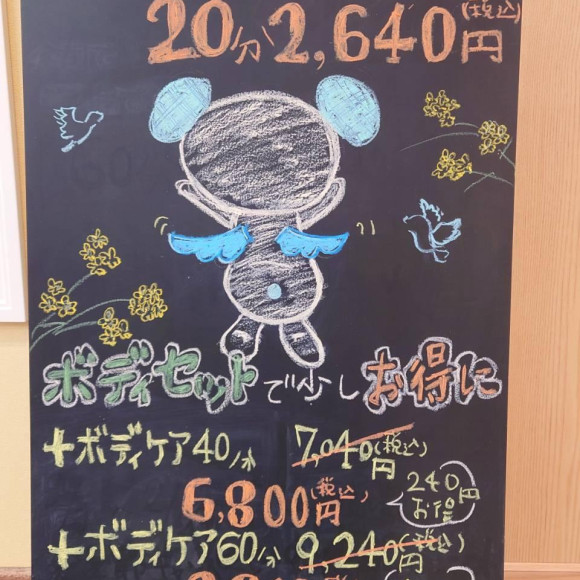 20分2,640円(税込)
ボディセットで少しお得に
+ボディケア40分 7,040円(税込)
6,800円(税込) 240円お得
+ボディケア60分 9,240円(税込)